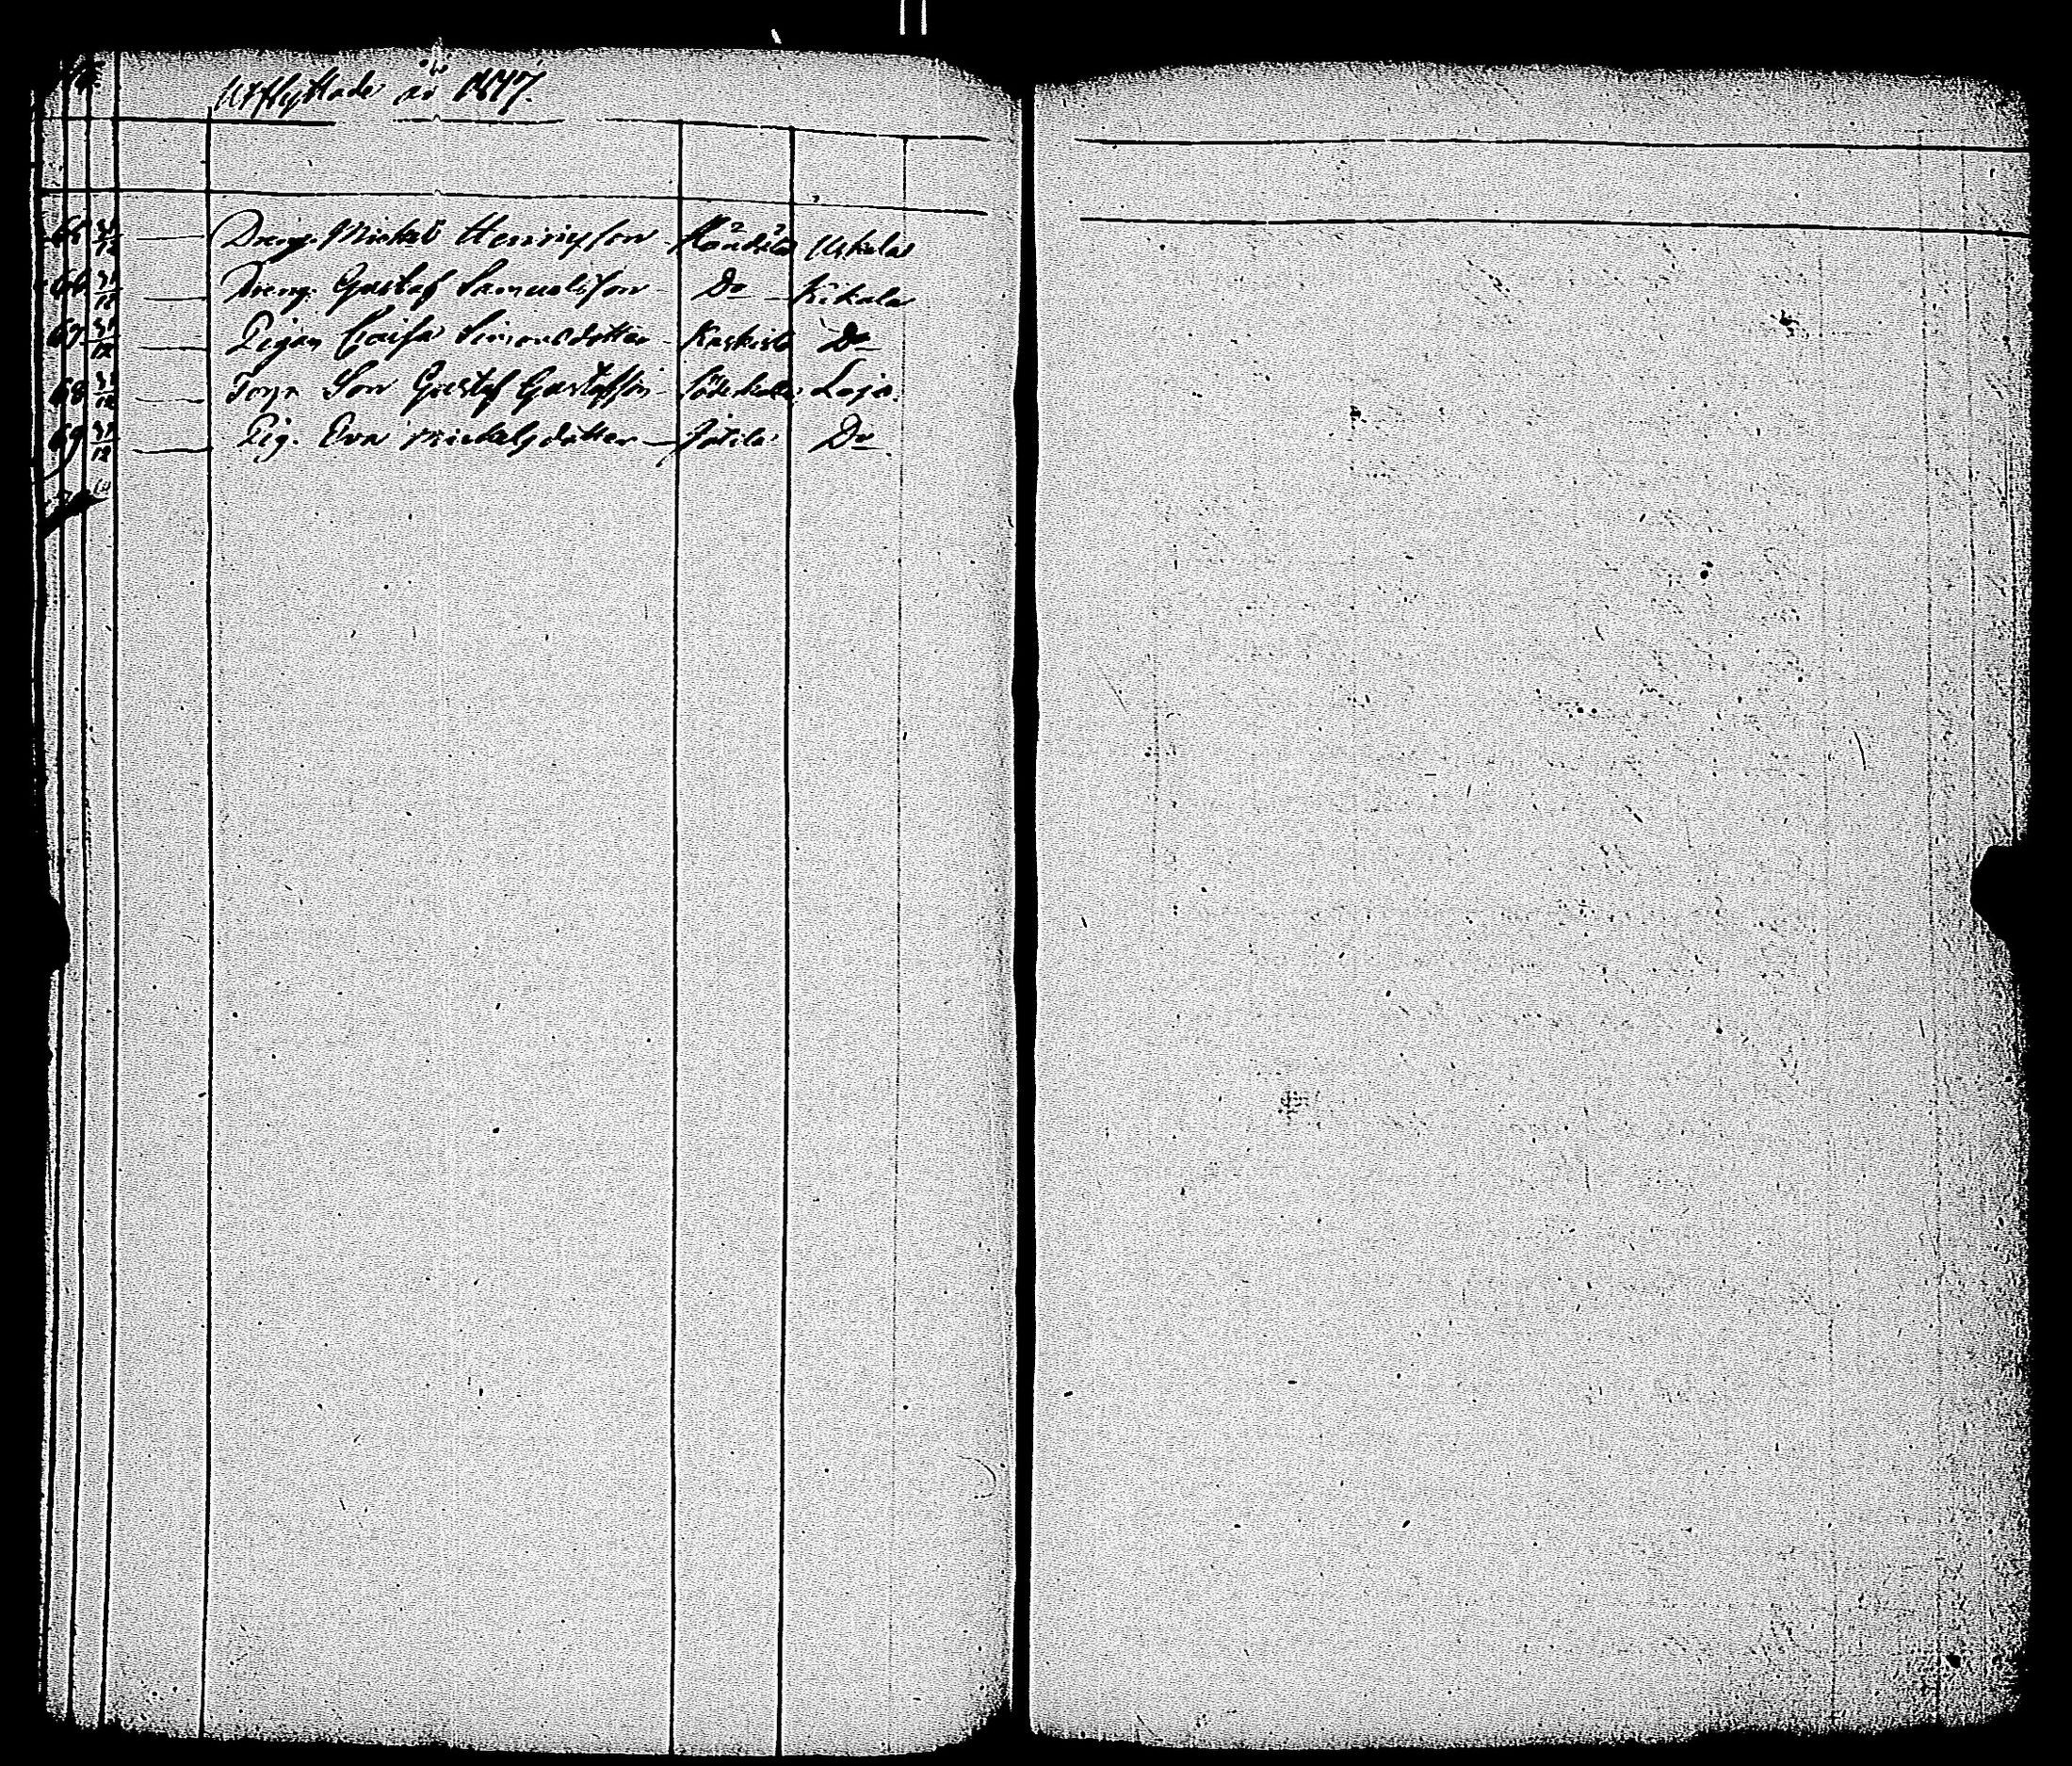 Utflyttade år 1847.
65 31/12 — Dreng. Mickel Henricsson Uskela
66 31/12 — Dreng. Gustaf Samuelsson Do Kikala
67 31/12 — Pigan Caisa Simonsdotter Koskis Do
68 31/12 — Torp. Son Gustaf Gustafsson Lojo.
69 31/12 — Pig. Eva Mickelsdotter Do